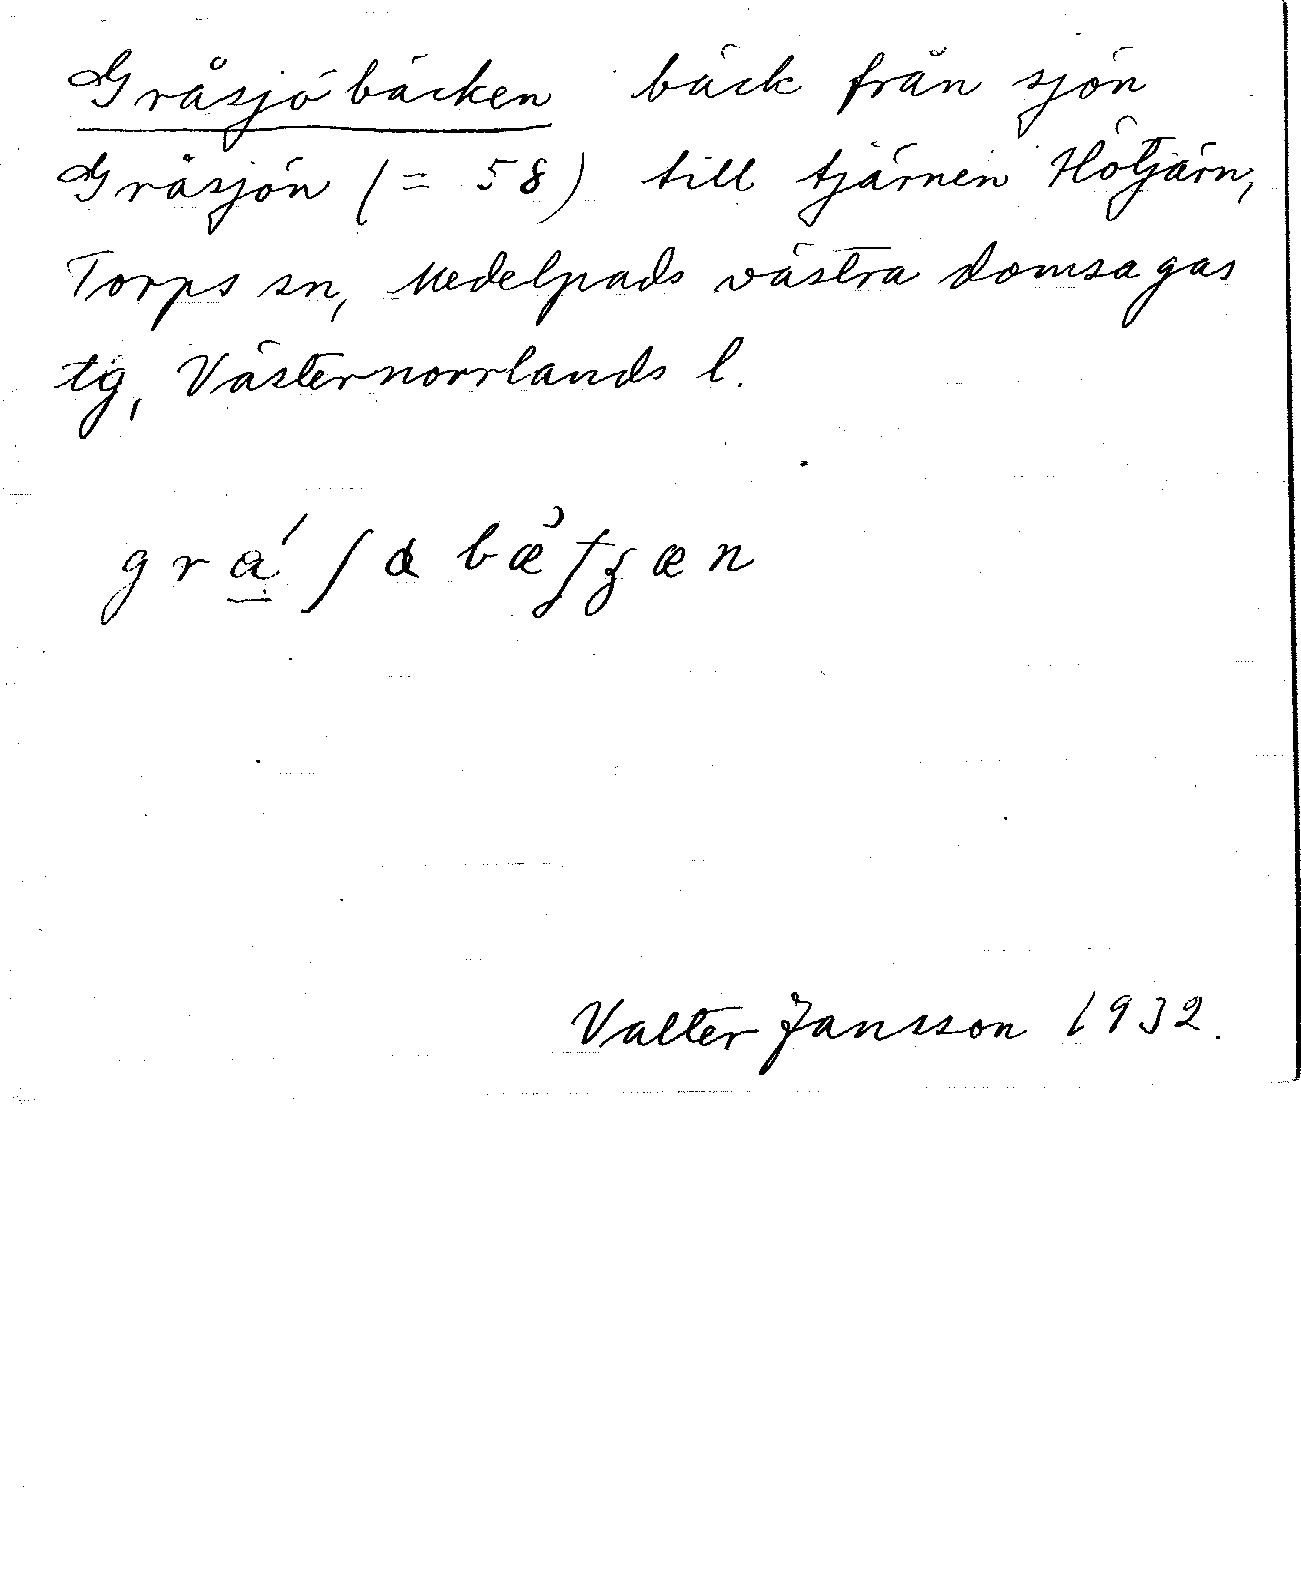 Gråsjöbäcken bäck från sjön
Gråsjön (= 58) till tjärnen Hötjärn,
Torps sn, Medelpads västra domsagas
tg, Västernorrlands l.
Valter Jansson 1932.